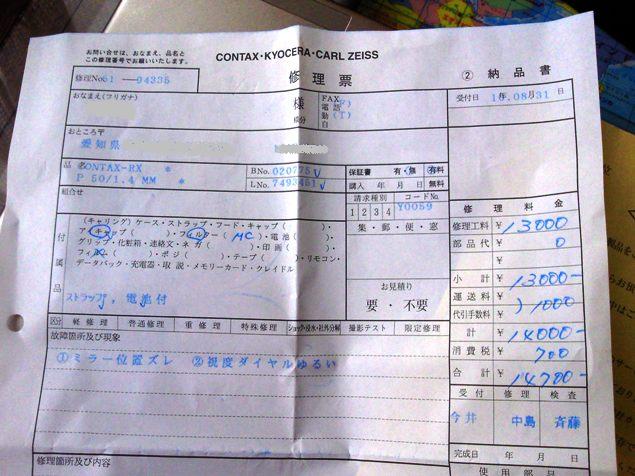 お問い合せは、おなまえ、品名と
この修理番号でお願いいたします。
CONTAX・KYOCERA・CARL ZEISS
修理No 61 -04335
修理票
② 納品書
おなまえ(フリガナ)
様
FAX
電話
勤
自
受付日 1年.08月31日
おところ〒
愛知県
品名 CONTAX-RX *
P 50/1.4 MM *
BNo. 020775
LNo. 7493461
保証書 有・無 有料
購入 年 月 日 無料
組合せ
請求種別 コードNo.
1 2 3 4 Y0059
集・郵・便・窓
付属品
(キャリング)ケース・ストラップ・フード・キャップ( )・
アイキャップ( )・フィルター( MC )・電池( )
グリップ・化粧箱・連絡文・ネガ( )・印画( )
フィルム( )・ポジ( )・テープ( )・リモコン・
データパック・充電器・取説・メモリーカード・クレイドル
ストラップ, 電池付
お見積り
要・不要
修理料金
修理工料 ¥ 13000
部品代 ¥ 0
¥
小計 ¥ 13000-
運送料 ¥
代引手数料 ¥ 1000
計 ¥ 14000-
消費税 ¥ 700
合計 ¥ 14700-
区分 軽修理 普通修理 重修理 特殊修理 ショック・浸水・社外分解 撮影テスト 限定修理
故障箇所及び現象
①ミラー位置ズレ ②視度ダイヤルゆるい
受付 修理 検査
今井 中島 斉藤
完成日 年 月 日
修理箇所及び内容
使用部品